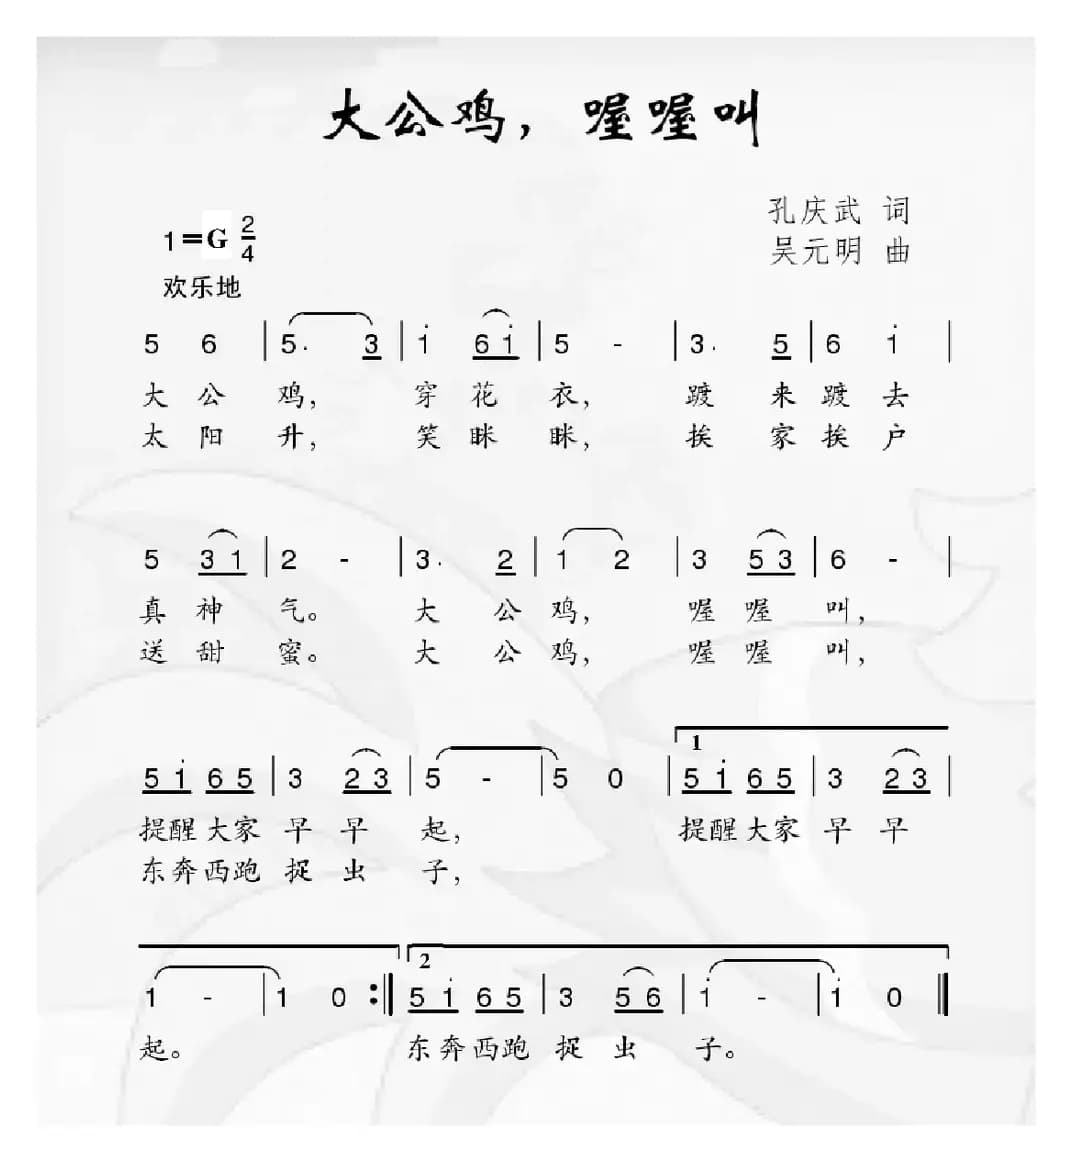 大公鸡，喔喔叫
孔庆武 词
1=G 2/4
吴元明 曲
欢乐地
5 6 | 5. 3 | i 6 i | 5 - | 3. 5 | 6 i |
大 公 鸡， 穿 花 衣， 踱 来 踱 去
太 阳 升， 笑 眯 眯， 挨 家 挨 户
5 3 1 | 2 - | 3. 2 | 1 2 | 3 5 3 | 6 - |
真 神 气。 大 公 鸡， 喔 喔 叫，
送 甜 蜜。 大 公 鸡， 喔 喔 叫，
1
5 i 6 5 | 3 2 3 | 5 - | 5 0 | 5 i 6 5 | 3 2 3 |
提醒 大家 早 早 起， 提醒 大家 早 早
东奔 西跑 捉 虫 子，
2
1 - | 1 0 :‖ 5 i 6 5 | 3 5 6 | i - | i 0 ‖
起。 东奔 西跑 捉 虫 子。